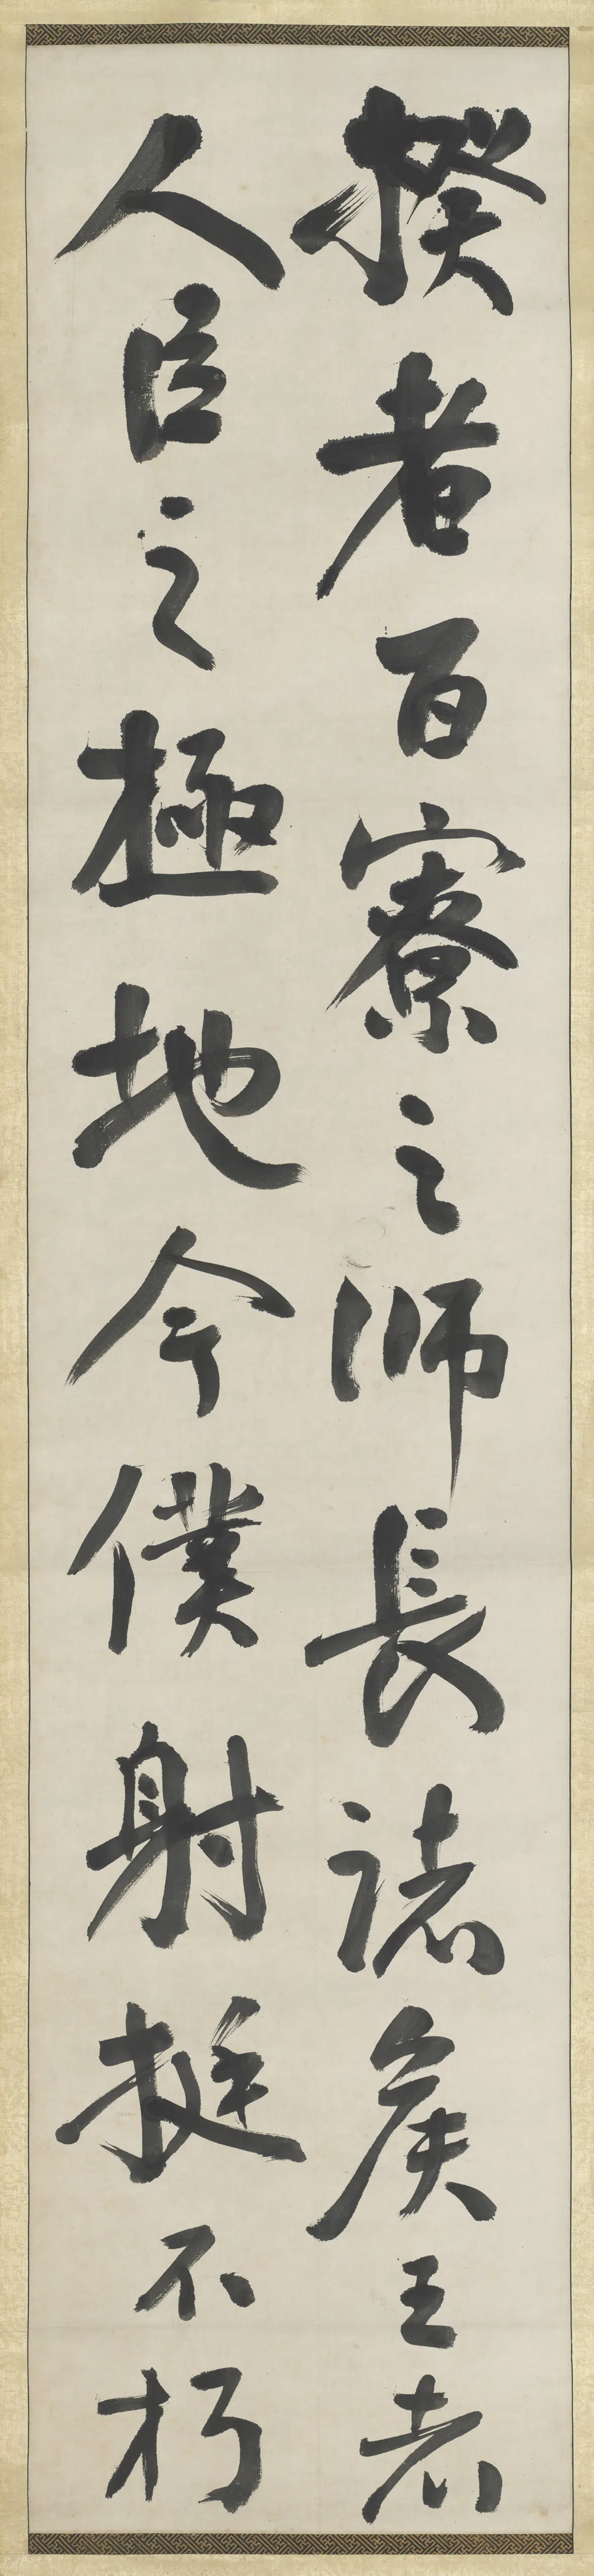 揆者百寮之師長諸侯王者
人臣之極地今僕射挺不朽